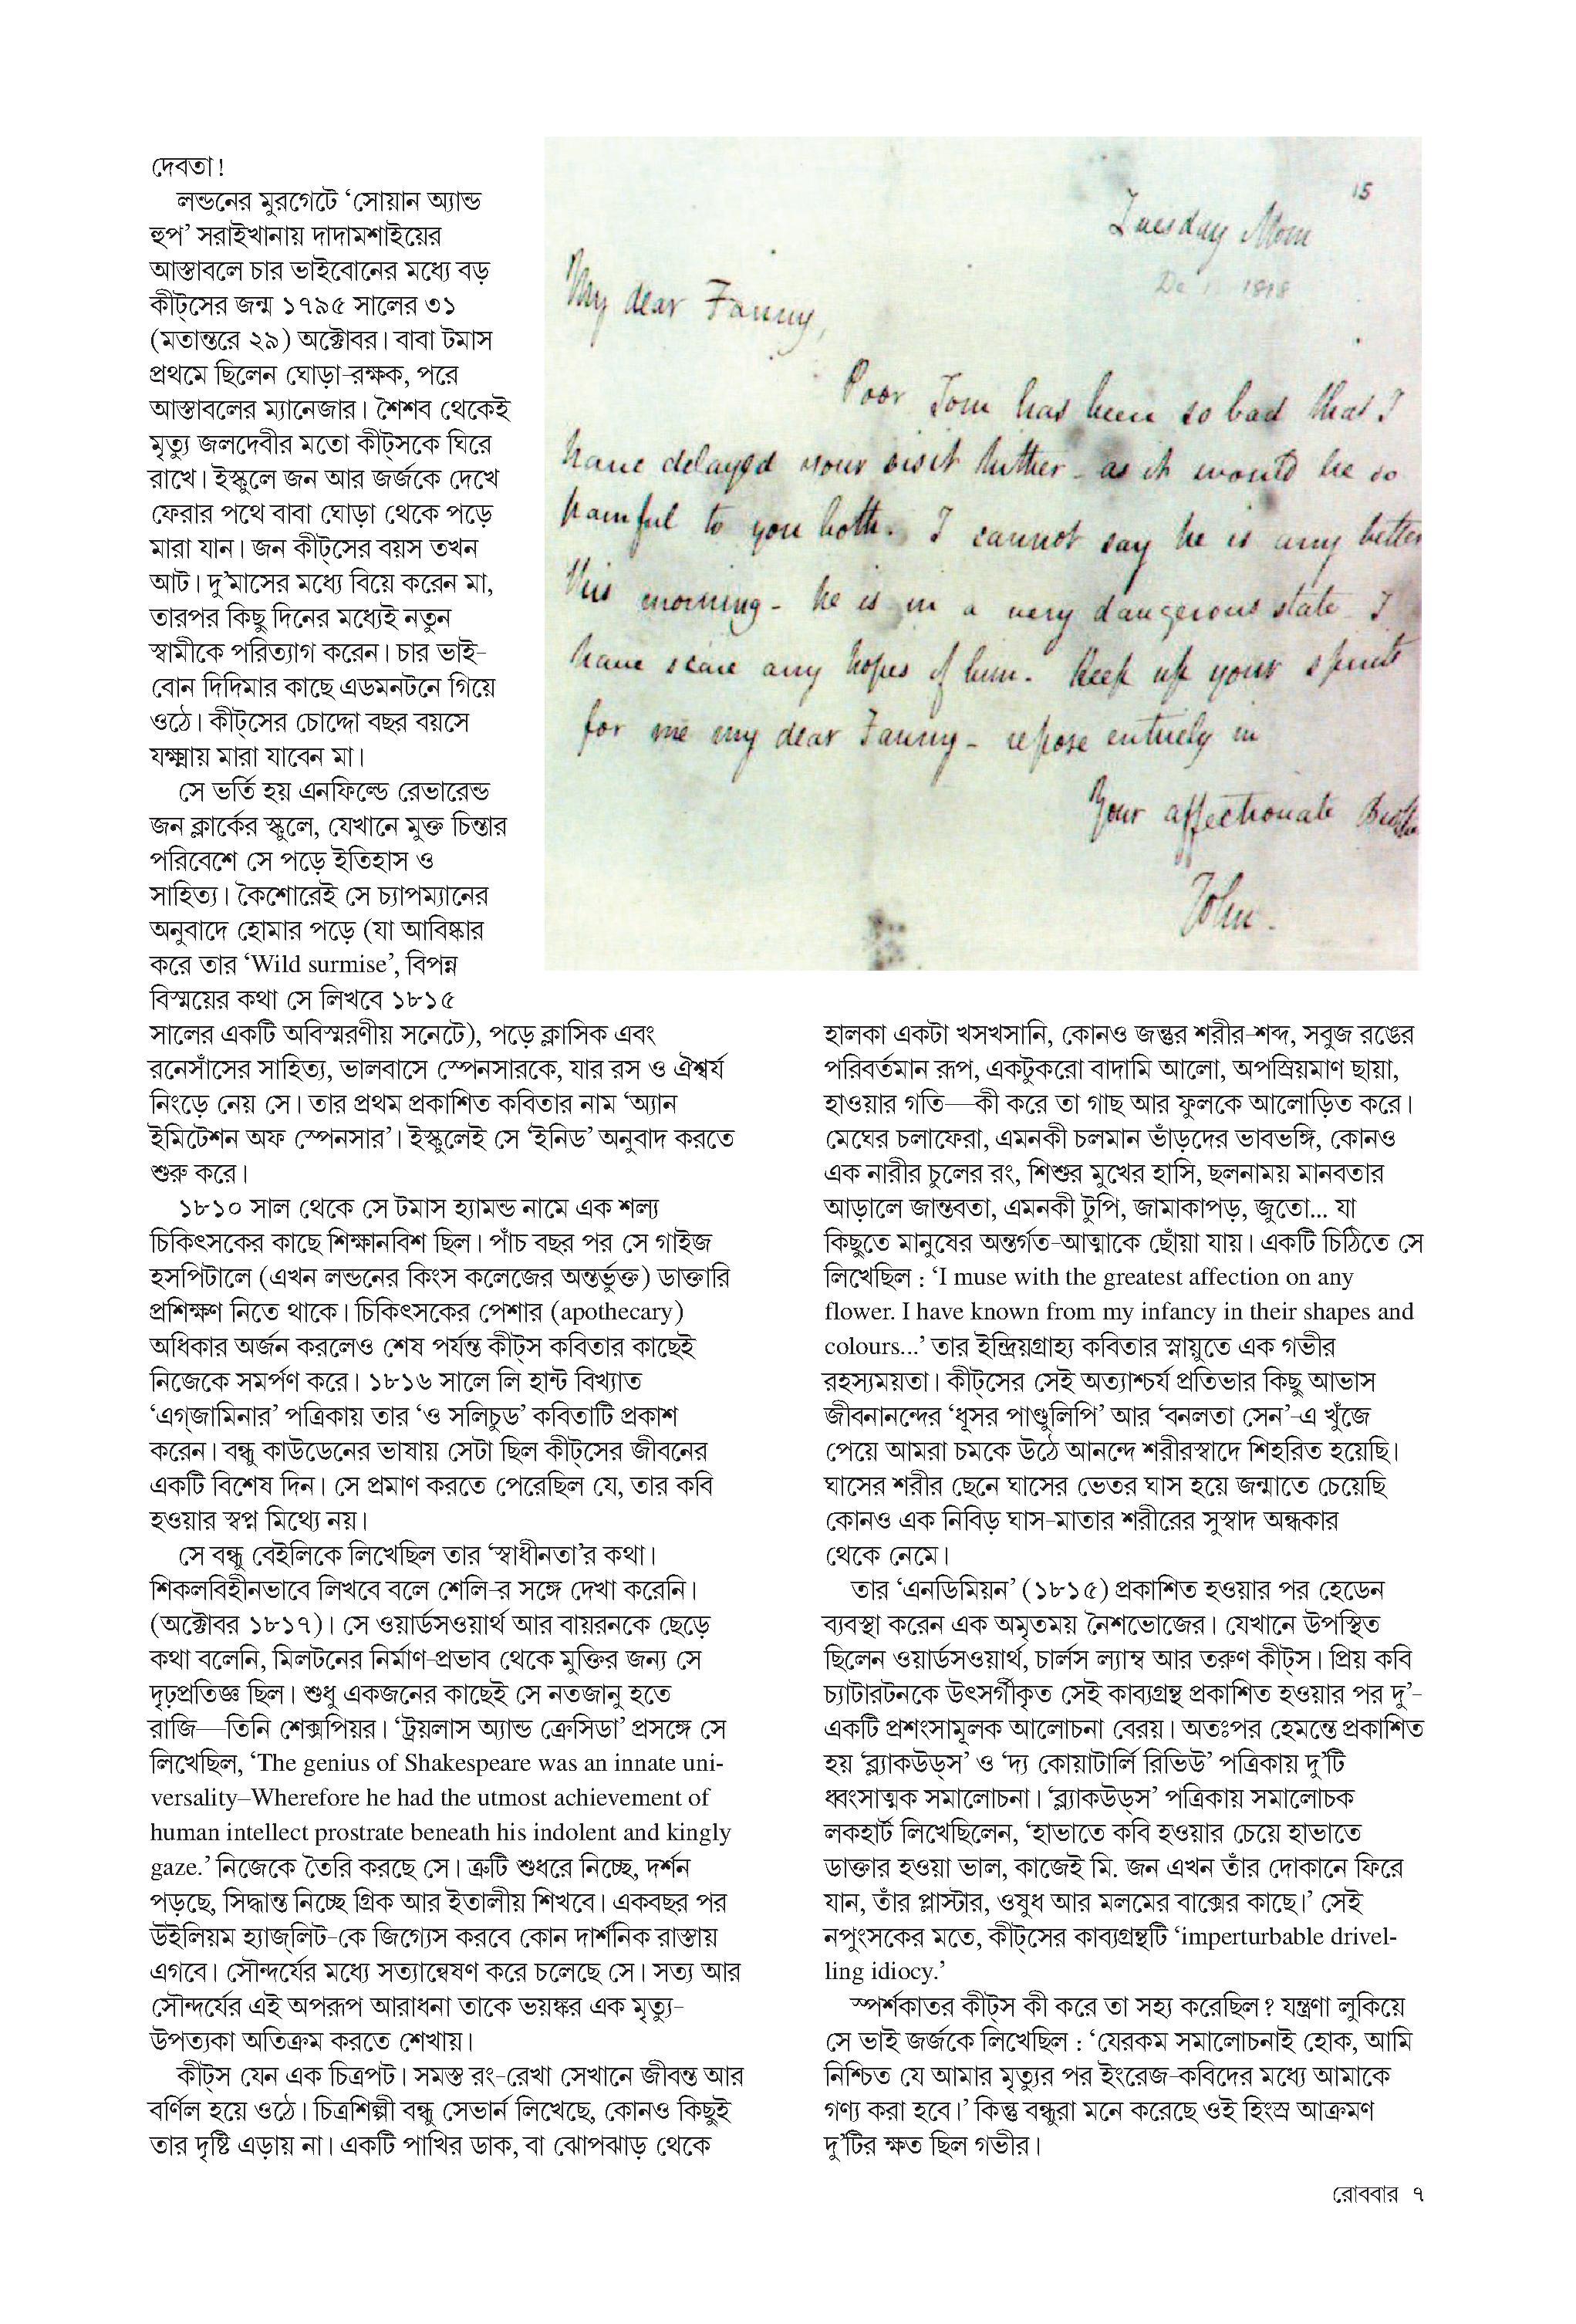 দেবতা!
লন্ডনের মুরগেটে ‘সোয়ান অ্যান্ড
হুপ’ সরাইখানায় দাদামশাইয়ের
আস্তাবলে চার ভাইবোনের মধ্যে বড়
কীট্‌সের জন্ম ১৭৯৫ সালের ৩১
(মতান্তরে ২৯) অক্টোবর। বাবা টমাস
প্রথমে ছিলেন ঘোড়া-রক্ষক, পরে
আস্তাবলের ম্যানেজার। শৈশব থেকেই
মৃত্যু জলদেবীর মতো কীট্‌সকে ঘিরে
রাখে। ইস্কুলে জন আর জর্জকে দেখে
ফেরার পথে বাবা ঘোড়া থেকে পড়ে
মারা যান। জন কীট্‌সের বয়স তখন
আট। দু’মাসের মধ্যে বিয়ে করেন মা,
তারপর কিছু দিনের মধ্যেই নতুন
স্বামীকে পরিত্যাগ করেন। চার ভাই-
বোন দিদিমার কাছে এডমনটনে গিয়ে
ওঠে। কীট্‌সের চোদ্দো বছর বয়সে
যক্ষ্মায় মারা যাবেন মা।
সে ভর্তি হয় এনফিল্ডে রেভারেন্ড
জন ক্লার্কের স্কুলে, যেখানে মুক্ত চিন্তার
পরিবেশে সে পড়ে ইতিহাস ও
সাহিত্য। কৈশোরেই সে চ্যাপম্যানের
অনুবাদে হোমার পড়ে (যা আবিষ্কার
করে তার ‘Wild surmise’, বিপন্ন
বিস্ময়ের কথা সে লিখবে ১৮১৫
সালের একটি অবিস্মরণীয় সনেটে), পড়ে ক্লাসিক এবং
রনেসাঁসের সাহিত্য, ভালবাসে স্পেনসারকে, যার রস ও ঐশ্বর্য
নিংড়ে নেয় সে। তার প্রথম প্রকাশিত কবিতার নাম ‘অ্যান
ইমিটেশন অফ স্পেনসার’। ইস্কুলেই সে ‘ইনিড’ অনুবাদ করতে
শুরু করে।
১৮১০ সাল থেকে সে টমাস হ্যামন্ড নামে এক শল্য
চিকিৎসকের কাছে শিক্ষানবিশ ছিল। পাঁচ বছর পর সে গাইজ
হসপিটালে (এখন লন্ডনের কিংস কলেজের অন্তর্ভুক্ত) ডাক্তারি
প্রশিক্ষণ নিতে থাকে। চিকিৎসকের পেশার (apothecary)
অধিকার অর্জন করলেও শেষ পর্যন্ত কীট্‌স কবিতার কাছেই
নিজেকে সমর্পণ করে। ১৮১৬ সালে লি হান্ট বিখ্যাত
‘এগ্‌জামিনার’ পত্রিকায় তার ‘ও সলিচুড’ কবিতাটি প্রকাশ
করেন। বন্ধু কাউডেনের ভাষায় সেটা ছিল কীট্‌সের জীবনের
একটি বিশেষ দিন। সে প্রমাণ করতে পেরেছিল যে, তার কবি
হওয়ার স্বপ্ন মিথ্যে নয়।
সে বন্ধু বেইলিকে লিখেছিল তার ‘স্বাধীনতা’র কথা।
শিকলবিহীনভাবে লিখবে বলে শেলি-র সঙ্গে দেখা করেনি।
(অক্টোবর ১৮১৭)। সে ওয়ার্ডসওয়ার্থ আর বায়রনকে ছেড়ে
কথা বলেনি, মিলটনের নির্মাণ-প্রভাব থেকে মুক্তির জন্য সে
দৃঢ়প্রতিজ্ঞ ছিল। শুধু একজনের কাছেই সে নতজানু হতে
রাজি—তিনি শেক্সপিয়র। ‘ট্রয়লাস অ্যান্ড ক্রেসিডা’ প্রসঙ্গে সে
লিখেছিল, ‘The genius of Shakespeare was an innate uni-
versality–Wherefore he had the utmost achievement of
human intellect prostrate beneath his indolent and kingly
gaze.’ নিজেকে তৈরি করছে সে। ত্রুটি শুধরে নিচ্ছে, দর্শন
পড়ছে, সিদ্ধান্ত নিচ্ছে গ্রিক আর ইতালীয় শিখবে। একবছর পর
উইলিয়ম হ্যাজ্‌লিট-কে জিগ্যেস করবে কোন দার্শনিক রাস্তায়
এগবে। সৌন্দর্যের মধ্যে সত্যান্বেষণ করে চলেছে সে। সত্য আর
সৌন্দর্যের এই অপরূপ আরাধনা তাকে ভয়ঙ্কর এক মৃত্যু-
উপত্যকা অতিক্রম করতে শেখায়।
কীট্‌স যেন এক চিত্রপট। সমস্ত রং-রেখা সেখানে জীবন্ত আর
বর্ণিল হয়ে ওঠে। চিত্রশিল্পী বন্ধু সেভার্ন লিখেছে, কোনও কিছুই
তার দৃষ্টি এড়ায় না। একটি পাখির ডাক, বা ঝোপঝাড় থেকে
15
Tuesday Morn
De 1 1818
My dear Fanny,
Poor Tom has been so bad that I
have delayed your visit hither - as it would be so
painful to you both. I cannot say he is any better
this morning - he is in a very dangerous state - I
have scarce any hopes of him. Keep up your spirits
for me my dear Fanny - repose entirely in
Your affectionate Brother
John.
হালকা একটা খসখসানি, কোনও জন্তুর শরীর-শব্দ, সবুজ রঙের
পরিবর্তমান রূপ, একটুকরো বাদামি আলো, অপস্রিয়মাণ ছায়া,
হাওয়ার গতি—কী করে তা গাছ আর ফুলকে আলোড়িত করে।
মেঘের চলাফেরা, এমনকী চলমান ভাঁড়দের ভাবভঙ্গি, কোনও
এক নারীর চুলের রং, শিশুর মুখের হাসি, ছলনাময় মানবতার
আড়ালে জান্তবতা, এমনকী টুপি, জামাকাপড়, জুতো... যা
কিছুতে মানুষের অন্তর্গত-আত্মাকে ছোঁয়া যায়। একটি চিঠিতে সে
লিখেছিল : ‘I muse with the greatest affection on any
flower. I have known from my infancy in their shapes and
colours...’ তার ইন্দ্রিয়গ্রাহ্য কবিতার স্নায়ুতে এক গভীর
রহস্যময়তা। কীট্‌সের সেই অত্যাশ্চর্য প্রতিভার কিছু আভাস
জীবনানন্দের ‘ধূসর পাণ্ডুলিপি’ আর ‘বনলতা সেন’-এ খুঁজে
পেয়ে আমরা চমকে উঠে আনন্দে শরীরস্বাদে শিহরিত হয়েছি।
ঘাসের শরীর ছেনে ঘাসের ভেতর ঘাস হয়ে জন্মাতে চেয়েছি
কোনও এক নিবিড় ঘাস-মাতার শরীরের সুস্বাদ অন্ধকার
থেকে নেমে।
তার ‘এনডিমিয়ন’ (১৮১৫) প্রকাশিত হওয়ার পর হেডেন
ব্যবস্থা করেন এক অমৃতময় নৈশভোজের। যেখানে উপস্থিত
ছিলেন ওয়ার্ডসওয়ার্থ, চার্লস ল্যাম্ব আর তরুণ কীট্‌স। প্রিয় কবি
চ্যাটারটনকে উৎসর্গীকৃত সেই কাব্যগ্রন্থ প্রকাশিত হওয়ার পর দু’-
একটি প্রশংসামূলক আলোচনা বেরয়। অতঃপর হেমন্তে প্রকাশিত
হয় ‘ব্ল্যাকউড্‌স’ ও ‘দ্য কোয়াটার্লি রিভিউ’ পত্রিকায় দু’টি
ধ্বংসাত্মক সমালোচনা। ‘ব্ল্যাকউড্‌স’ পত্রিকায় সমালোচক
লকহার্ট লিখেছিলেন, ‘হাভাতে কবি হওয়ার চেয়ে হাভাতে
ডাক্তার হওয়া ভাল, কাজেই মি. জন এখন তাঁর দোকানে ফিরে
যান, তাঁর প্লাস্টার, ওষুধ আর মলমের বাক্সের কাছে।’ সেই
নপুংসকের মতে, কীট্‌সের কাব্যগ্রন্থটি ‘imperturbable drivel-
ling idiocy.’
স্পর্শকাতর কীট্‌স কী করে তা সহ্য করেছিল? যন্ত্রণা লুকিয়ে
সে ভাই জর্জকে লিখেছিল : ‘যেরকম সমালোচনাই হোক, আমি
নিশ্চিত যে আমার মৃত্যুর পর ইংরেজ-কবিদের মধ্যে আমাকে
গণ্য করা হবে।’ কিন্তু বন্ধুরা মনে করেছে ওই হিংস্র আক্রমণ
দু’টির ক্ষত ছিল গভীর।
রোববার ৭